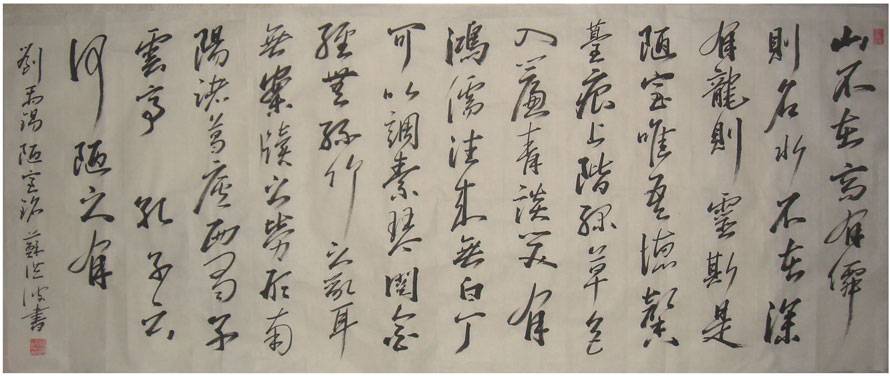 山不在高有僊
則名水不在深
有龍則靈斯是
陋室唯吾德馨
薹痕上階綠草色
入簾青談笑有
鴻儒往來無白丁
可以調素琴閱金
經無絲竹之亂耳
無案牘之勞形南
陽諸葛廬西蜀子
雲亭 孔子云
何陋之有
劉禹錫陋室銘 蘇洪波書